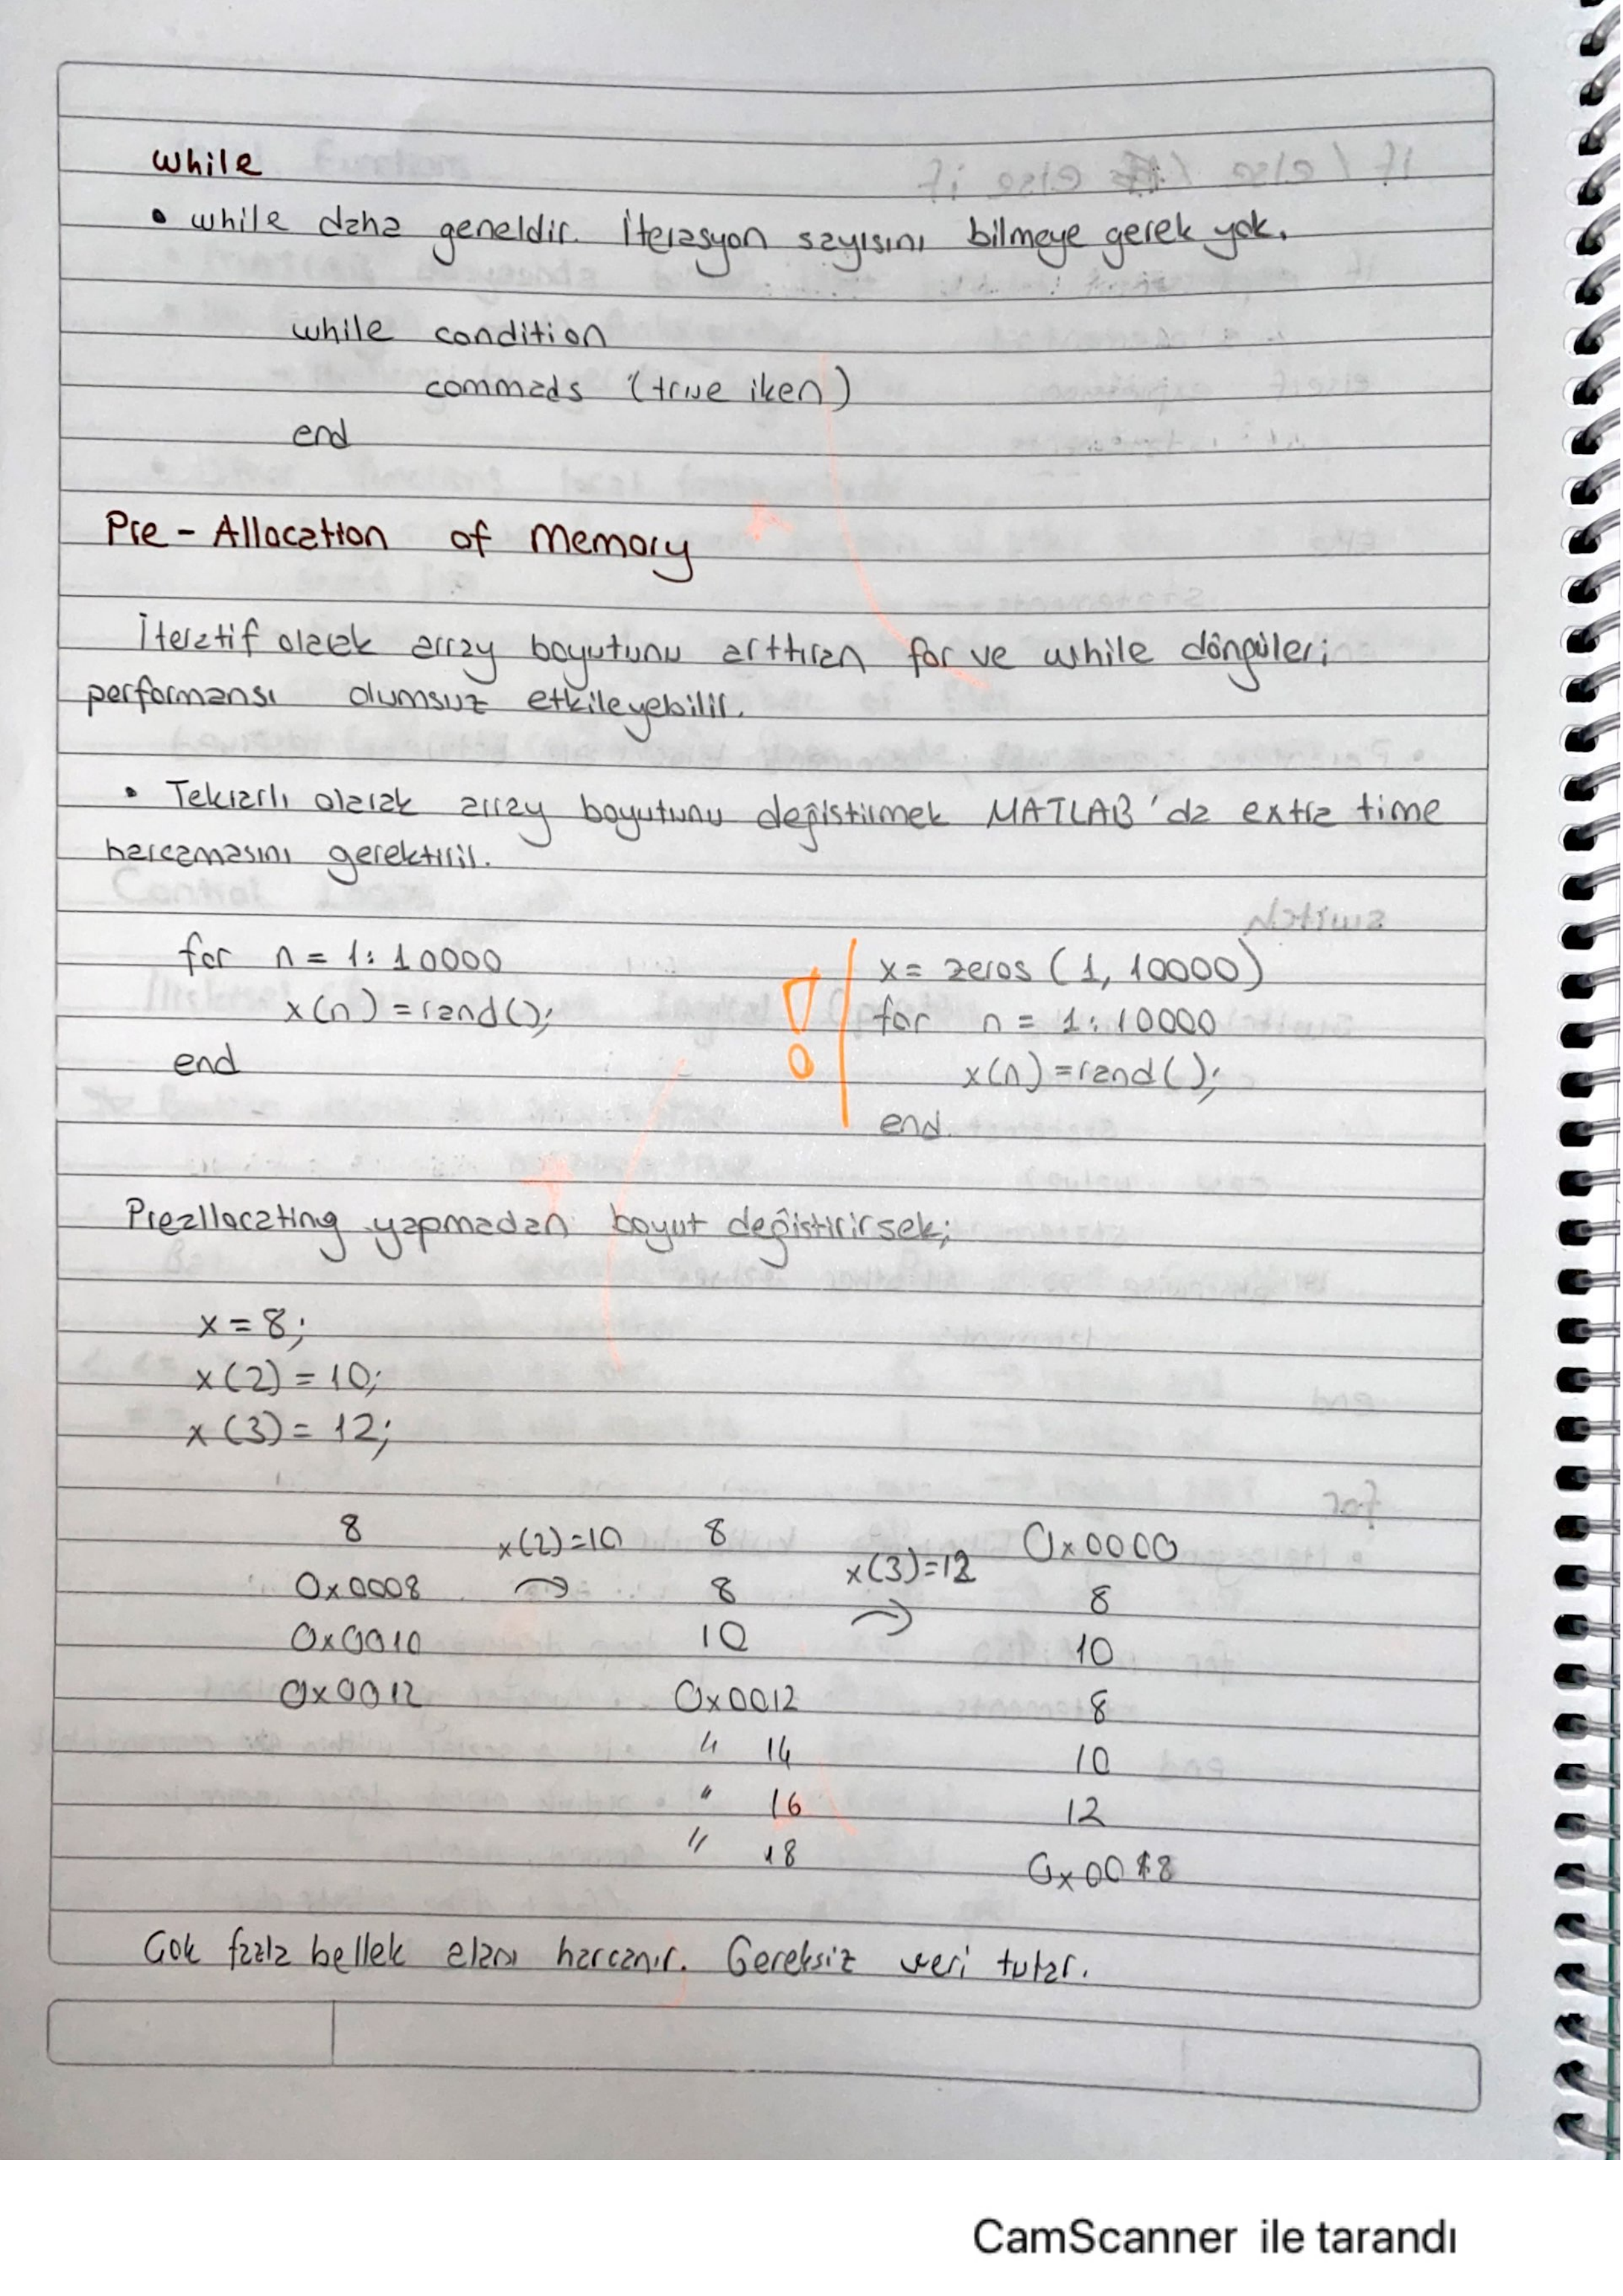 while
• while daha geneldir. İterasyon sayısını bilmeye gerek yok.
while condition
commads (true iken)
end
Pre-Allocation of Memory
İteratif olarak array boyutunu arttıran for ve while döngüleri
performansı olumsuz etkileyebilir.
• Tekrarlı olarak array boyutunu değiştirmek MATLAB'da extra time
harcamasını gerektirir.
for n = 1:10000
x(n) = rand();
end
!
x = zeros (1, 10000)
for n = 1:10000
x(n) = rand();
end
Preallocating yapmadan boyut değiştirirsek;
x = 8;
x(2) = 10;
x(3) = 12;
8 x(2)=10 8 x(3)=12 0x0000
0x0008 → 8 → 8
0x0010 10 10
0x0012 0x0012 8
" 14 10
" 16 12
" 18 0x0018
Çok fazla bellek alanı harcanır. Gereksiz veri tutar.
CamScanner ile tarandı